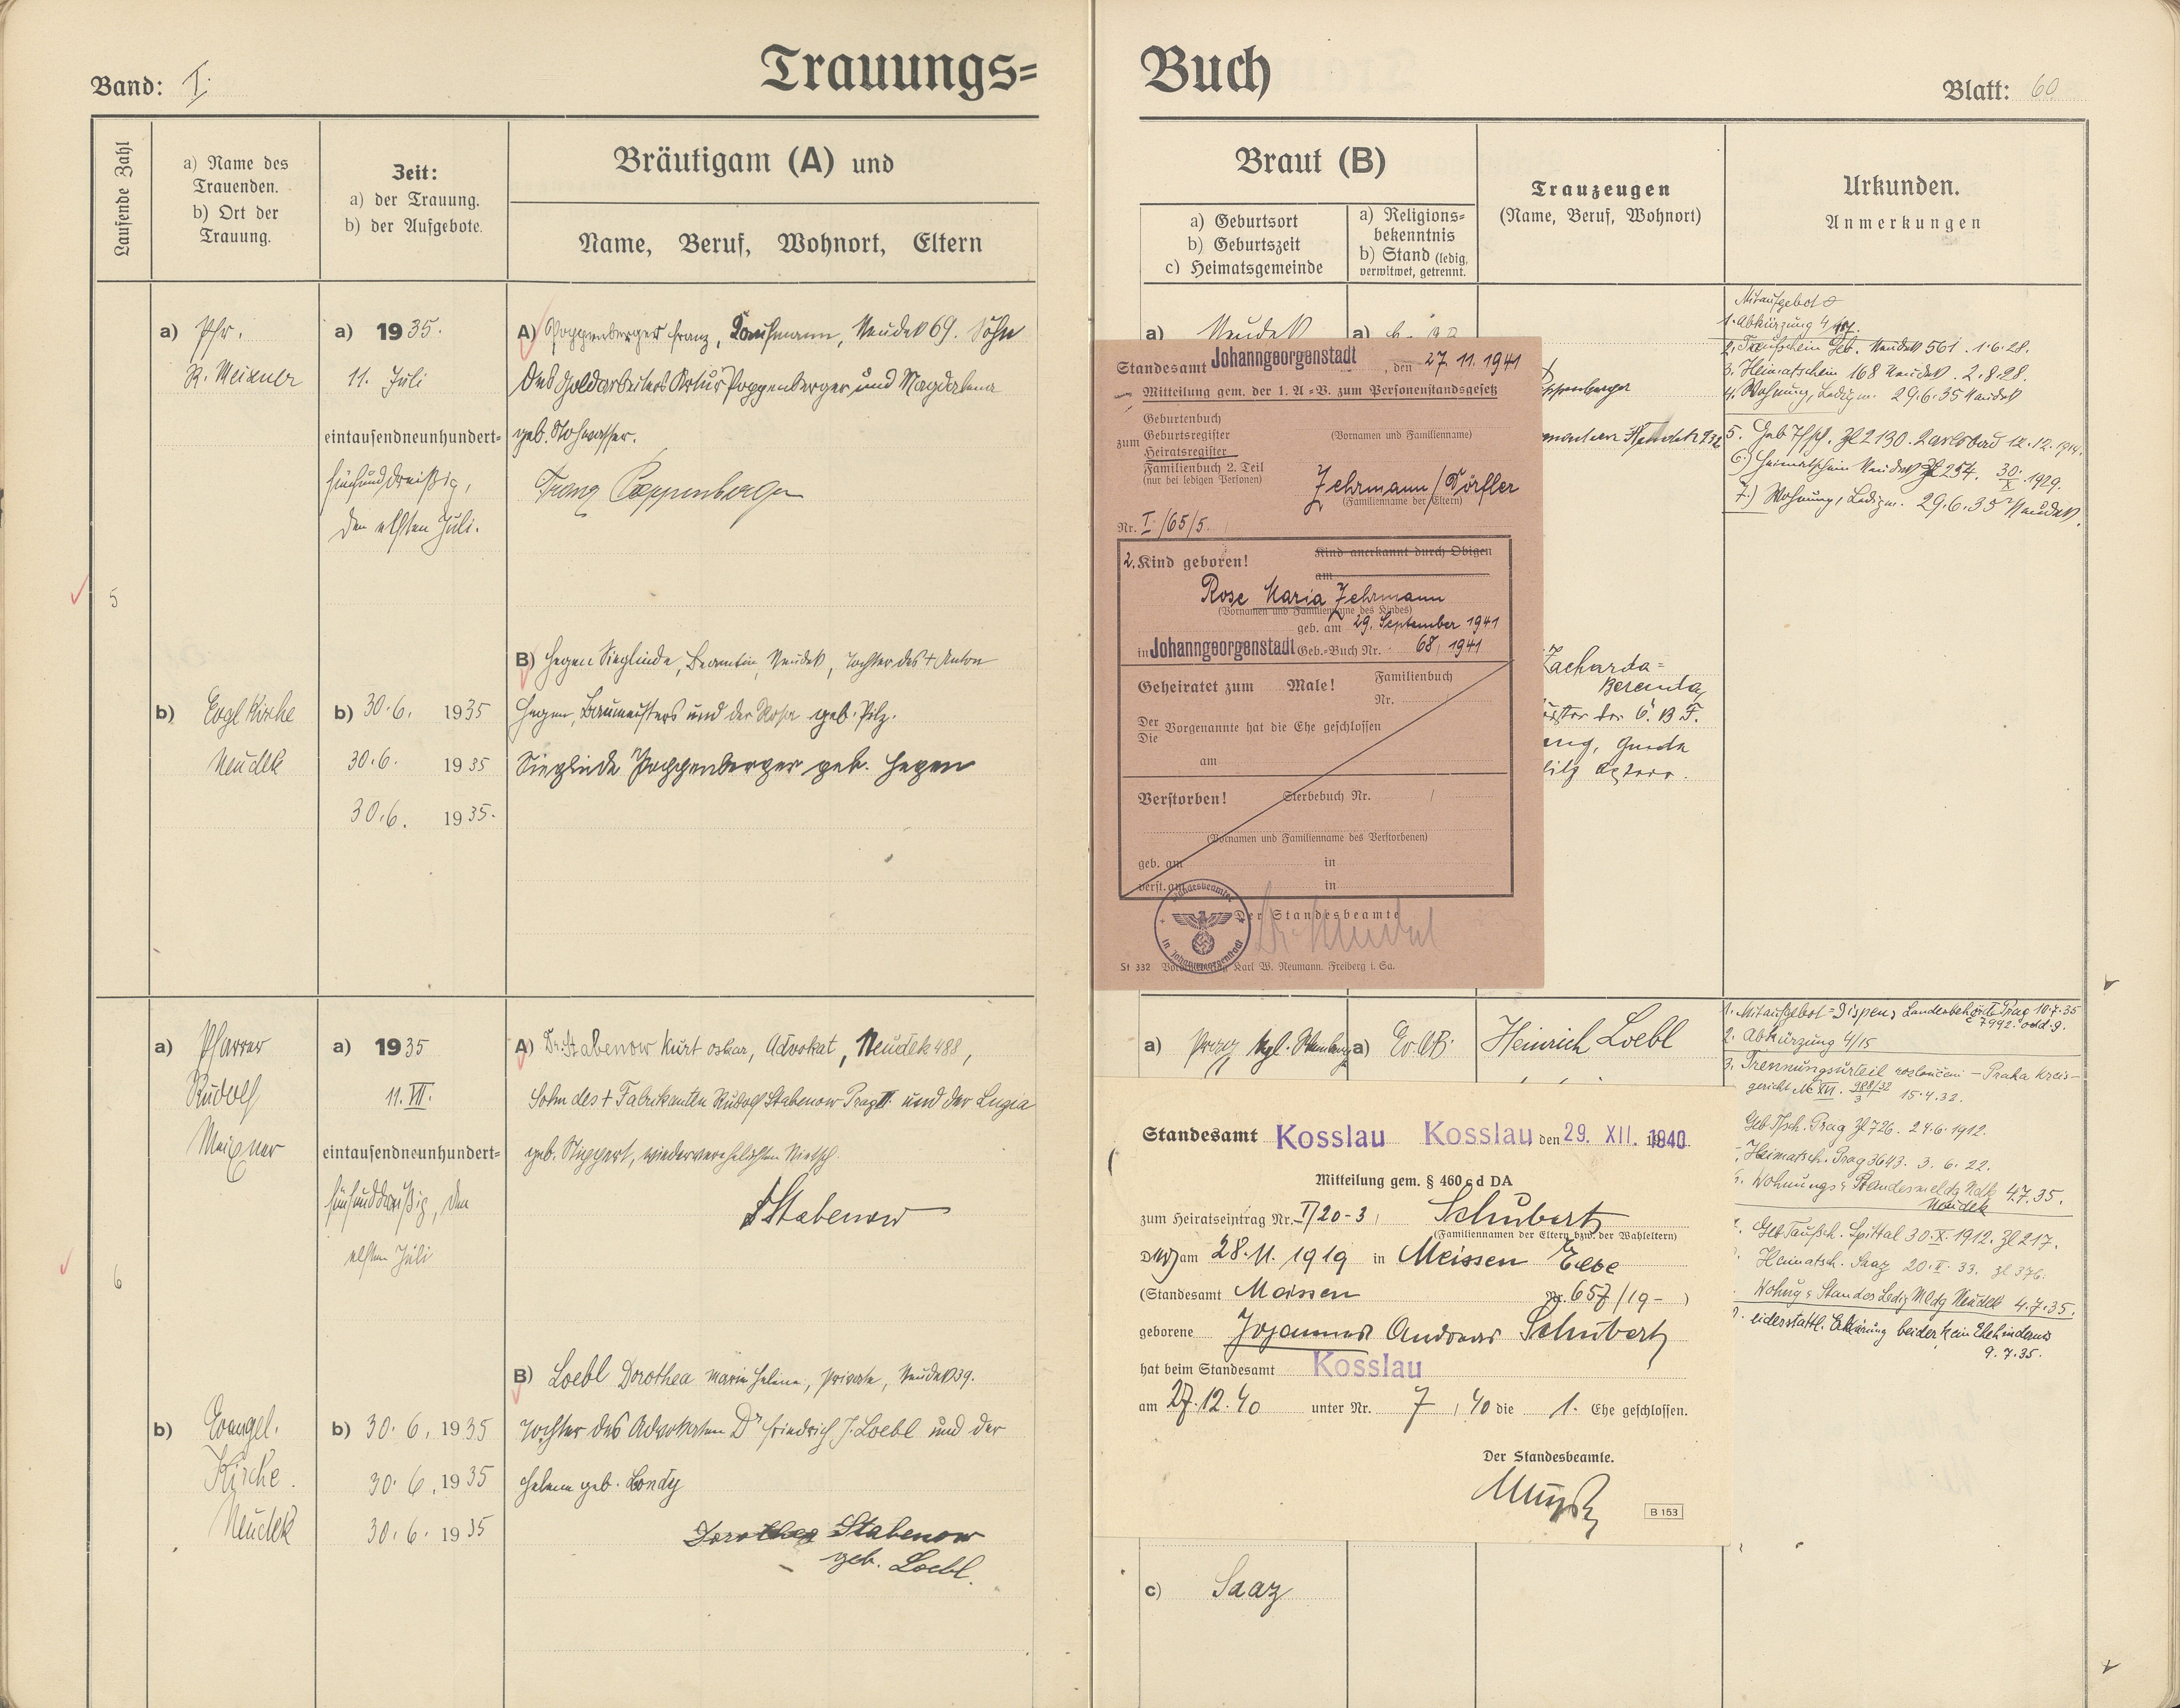 Trauungs= Buch
Band: I.
Blatt: 60
Laufende Zahl
a) Name des
Trauenden.
b) Ort der
Trauung.
Zeit:
a) der Trauung.
b) der Aufgebote.
Bräutigam (A) und
Name, Beruf, Wohnort, Eltern
Braut (B)
a) Geburtsort
b) Geburtszeit
c) Heimatsgemeinde
a) Religions=
bekenntnis
b) Stand (ledig,
verwitwet, getrennt.
Trauzeugen
(Name, Beruf, Wohnort)
Urkunden.
Anmerkungen
5
a) Pfr.
R. Meixner
b) Evgl Kirche
Neudek
a) 1935.
11. Juli
eintausendneunhundert=
fünfunddreißig,
den elften Juli.
b) 30.6. 1935
30.6. 1935
30.6. 1935.
A) Poppenberger Franz, Kaufmann, Neudek 69. Sohn
des Goldarbeiters Artur Poppenberger und Magdalena
geb. Stohwasser.
Franz Poppenberger
B) Hegen Sieglinde, Beamtin, Neudek, Tochter des + Anton
Hegen, Baumeisters und der Rosa geb. Pilz.
Sieglinde Poppenberger geb. Hegen
a) Neudek
a)
Mitaufgebot
1. Abkürzung 4/
2. Taufschein Geb. Neudek 561. 1.6.28.
3. Heimatschein 168 Neudek. 2.8.28.
4. Wohnung, Ledigm. 29.6.35 Neudek
5. Geb Zl 2130. Karlsbad 12.12.
6.) Heimatschein Neudek Zl 254. 30./X. 1929.
7.) Wohnung, Ledigm. 29.6.35 Neudek.
Standesamt Johanngeorgenstadt, den 27. 11. 1941
Mitteilung gem. der 1. A.=V. zum Personenstandsgesetz
zum
Geburtenbuch
Geburtsregister
Heiratsregister
Familienbuch 2. Teil
(nur bei ledigen Personen)
(Vornamen und Familienname)
Zehrmann / Dörfler
(Familienname der Eltern)
Nr. I /65/5.
2. Kind geboren!
Kind anerkannt durch Obigen
am
Rose Maria Zehrmann
(Vornamen und Familienname des Kindes)
geb. am 29. September 1941
in Johanngeorgenstadt Geb.=Buch Nr. 68, 1941
Geheiratet zum Male!
Familienbuch
Nr.
Der
Die
Vorgenannte hat die Ehe geschlossen
am
Verstorben!
Sterbebuch Nr. /
(Vornamen und Familienname des Verstorbenen)
geb. am in
verst. am in
Der Standesbeamte
St 332 Karl W. Neumann. Freiberg i. Sa.
6
a) Pfarrer
Rudolf
Meixner
b) Evangel.
Kirche.
Neudek
a) 1935
11. VII.
eintausendneunhundert=
fünfunddreißig, den
elften Juli
b) 30. 6. 1935
30. 6. 1935
30. 6. 1935
A) Dr. Stabenow Kurt Oskar, Advokat, Neudek 488,
Sohn des + Fabrikanten Rudolf Stabenow Prag II. und der Luzia
geb. Nippert, wiederverehelichten Nietsch.
Stabenow
B) Loebl Dorothea Marie Helene, Private, Neudek 39.
Tochter des Advokaten Dr Friedrich J. Loebl und der
Helene geb. Bondy
Dorothea Stabenow
geb. Loebl.
a) Prag
a) Ev. AB.
Heinrich Loebl
1. Mitaufgebot = Dispens Landesbehörde Prag 10.7.35
2. Abkürzung 4/15
3. Trennungsurteil rozloučení - Praha Kreis-
gericht 15.4.32.
Prag Zl 726. 24.6.1912.
Heimatsch. Prag 3643. 3. 6. 22.
Wohnungs u Standesmeldg Ndk 4.7.35.
Neudek
Geb Taufsch. Spittal 30.X.1912. Zl 217.
Heimatsch. Saaz 20.II. 33. Zl 376.
Wohng u Standes Ledig Mldg Neudek 4.7.35.
eidesstattl. Erklärung beider kein Ehehindernis
9.7.35.
Standesamt Kosslau Kosslau, den 29. XII. 1940
Mitteilung gem. § 460 c d DA
zum Heiratseintrag Nr. I/20-3, Schubert
(Familiennamen der Eltern bzw. der Wahleltern)
am 28. 11. 1919 in Meissen Elbe
(Standesamt Meissen Nr. 657/19-)
geborene Johannes Andreas Schubert
hat beim Standesamt Kosslau
am 27.12.40 unter Nr. 7 / 40 die 1. Ehe geschlossen.
Der Standesbeamte.
B 153
c) Saaz